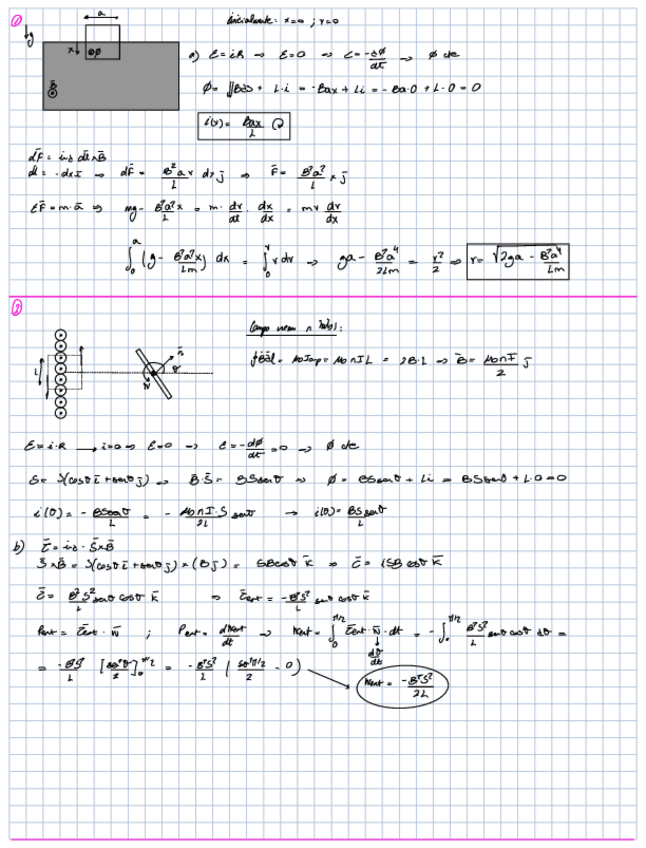 ①
a
g
x
⊗φ
B̄
inicialmente: x=0 ; v=0
a) ε = iR → ε=0 → ε = -dφ/dt → φ cte
φ = ∬B̄dS̄ + L·i = -Bax + Li = -Ba·0 + L·0 = 0
i(x) = Bax/L ↻
dF̄ = i₂ dl̄∧B̄
dl = -dx ī → dF̄ = B²ax/L dx j̄ → F̄ = B²a²/L x j̄
ΣF̄ = m·ā → mg - B²a²x/L = m·dv/dt · dx/dx = mv dv/dx
∫₀ᵃ (g - B²a²x/Lm) dx = ∫₀ᵛ v dv → ga - B²a⁴/2Lm = v²/2 → v = √(2ga - B²a⁴/Lm)
②
L
n̄
θ
w̄
∮B̄dl̄ = μ₀I = μ₀nIL = 2B·L → B̄ = μ₀nI/2 j̄
ε = i·R → i=0 → ε=0 → ε = -dφ/dt = 0 → φ cte
S̄ = S(cosθ ī + senθ j̄) → B̄·S̄ = BS senθ → φ = BS senθ + Li = BS senθ + L·0 = 0
i(θ) = -BS senθ/L = -μ₀nI·S/2L senθ → i(θ) = BS senθ/L
b) τ̄ = i₂·S̄×B̄
S̄×B̄ = S(cosθ ī + senθ j̄)×(B j̄) = SB cosθ k̄ → τ̄ = iSB cosθ k̄
τ̄ = B²S²/L senθ cosθ k̄ → τ̄ext = -B²S²/L senθ cosθ k̄
Pext = τ̄ext · w̄ ; Pext = dWext/dt → Wext = ∫₀^π/2 τ̄ext · w̄ · dt = -∫₀^π/2 B²S²/L senθ cosθ dθ =
dθ/dt
= -B²S²/L [sen²θ/2]₀^π/2 = -B²S²/L (sen²π/2/2 - 0)
Wext = -B²S²/2L